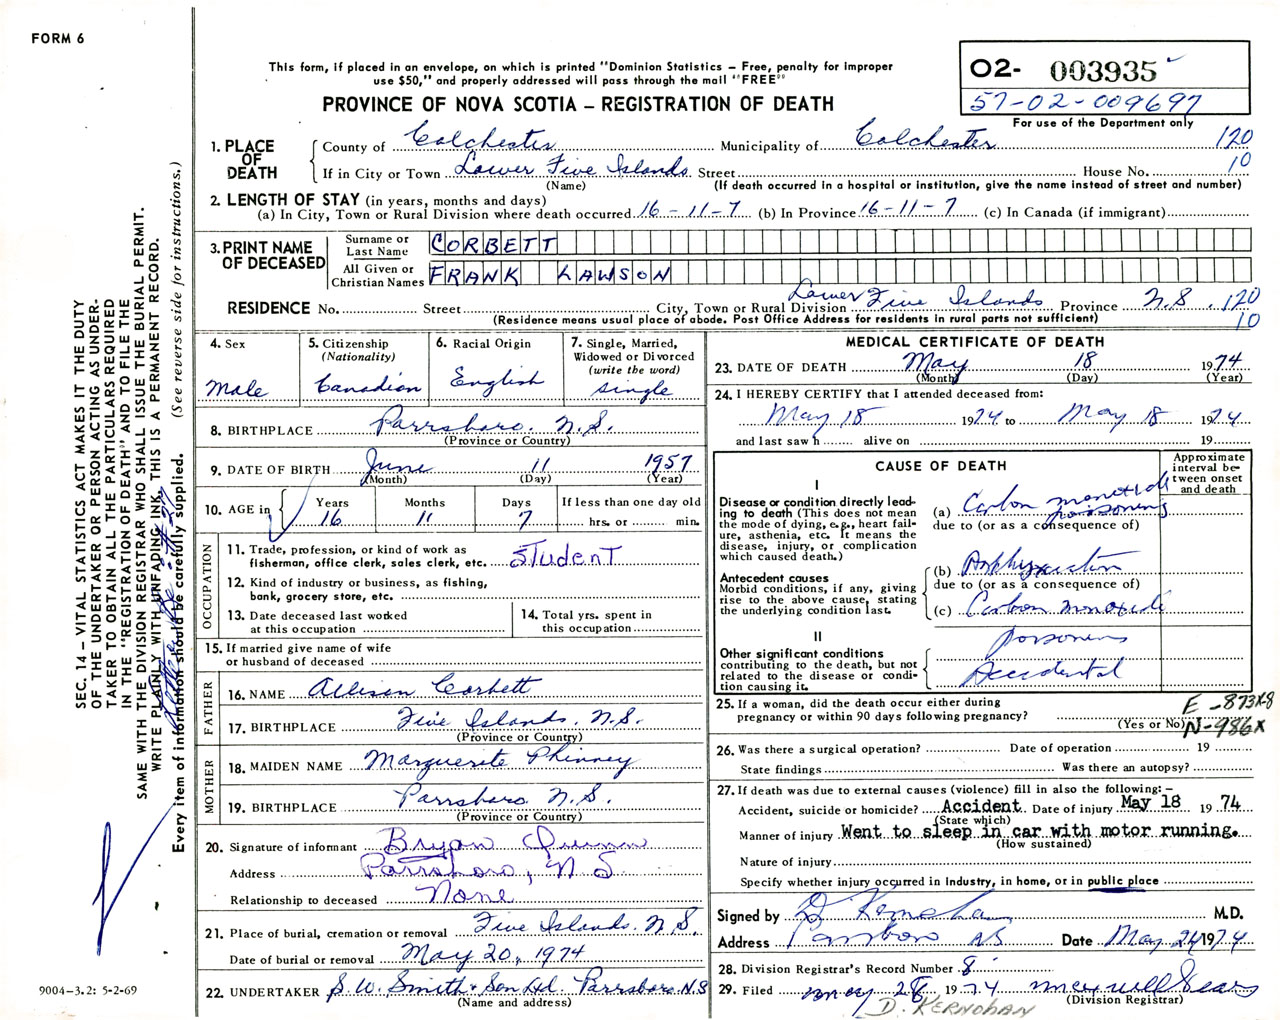 FORM 6
This form, if placed in an envelope, on which is printed "Dominion Statistics – Free, penalty for improper
use $50," and properly addressed will pass through the mail "FREE"
PROVINCE OF NOVA SCOTIA – REGISTRATION OF DEATH
02- 003935
57-02-009697
For use of the Department only
1. PLACE OF DEATH
County of Colchester Municipality of Colchester 120
If in City or Town Lower Five Islands Street House No. 10
(Name) (If death occurred in a hospital or institution, give the name instead of street and number)
2. LENGTH OF STAY (in years, months and days)
(a) In City, Town or Rural Division where death occurred 16-11-7 (b) In Province 16-11-7 (c) In Canada (if immigrant)
3. PRINT NAME OF DECEASED
Surname or Last Name CORBETT
All Given or Christian Names FRANK LAWSON
RESIDENCE No. Street City, Town or Rural Division Lower Five Islands Province N.S. 120
(Residence means usual place of abode. Post Office Address for residents in rural parts not sufficient) 10
4. Sex
Male
5. Citizenship
(Nationality)
Canadian
6. Racial Origin
English
7. Single, Married,
Widowed or Divorced
(write the word)
single
8. BIRTHPLACE Parrsboro. N.S.
(Province or Country)
9. DATE OF BIRTH June 11 1957
(Month) (Day) (Year)
10. AGE in Years Months Days If less than one day old
16 11 7 hrs. or min.
OCCUPATION
11. Trade, profession, or kind of work as
fisherman, office clerk, sales clerk, etc. STudenT
12. Kind of industry or business, as fishing,
bank, grocery store, etc.
13. Date deceased last worked
at this occupation
14. Total yrs. spent in
this occupation
15. If married give name of wife
or husband of deceased
FATHER
16. NAME Allison Corbett
17. BIRTHPLACE Five Islands. N.S.
(Province or Country)
MOTHER
18. MAIDEN NAME Marguerite Phinney
19. BIRTHPLACE Parrsboro N.S.
(Province or Country)
20. Signature of informant Bryon
Address Parrsboro, N S
Relationship to deceased None
21. Place of burial, cremation or removal Five Islands. N.S.
Date of burial or removal May 20, 1974
22. UNDERTAKER S.W. Smith & Son Ltd. Parrsboro N.S
(Name and address)
MEDICAL CERTIFICATE OF DEATH
23. DATE OF DEATH May 18 1974
(Month) (Day) (Year)
24. I HEREBY CERTIFY that I attended deceased from:
May 18 1974 to May 18 1974
and last saw h alive on 19
CAUSE OF DEATH
Approximate interval between onset and death
I
Disease or condition directly leading to death (This does not mean the mode of dying, e.g., heart failure, asthenia, etc. It means the disease, injury, or complication which caused death.)
(a) Carbon monoxide
poisoning
due to (or as a consequence of)
Antecedent causes
Morbid conditions, if any, giving rise to the above cause, stating the underlying condition last.
(b) Asphyxiation
due to (or as a consequence of)
(c) Carbon monoxide
poisoning
II
Other significant conditions
contributing to the death, but not related to the disease or condition causing it.
Accidental
25. If a woman, did the death occur either during
pregnancy or within 90 days following pregnancy?
(Yes or No)
E-873X8
N-986X
26. Was there a surgical operation? Date of operation 19
State findings Was there an autopsy?
27. If death was due to external causes (violence) fill in also the following:–
Accident, suicide or homicide? Accident Date of injury May 18 1974
(State which)
Manner of injury Went to sleep in car with motor running.
(How sustained)
Nature of injury
Specify whether injury occurred in Industry, in home, or in public place
Signed by D Kernohan M.D.
Address Parrsboro NS Date May 24 1974
28. Division Registrar's Record Number 8
29. Filed May 28 1974 Maxwell Sears
(Division Registrar)
D. KERNOHAN
SEC. 14 – VITAL STATISTICS ACT MAKES IT THE DUTY
OF THE UNDERTAKER OR PERSON ACTING AS UNDER-
TAKER TO OBTAIN ALL THE PARTICULARS REQUIRED
IN THE "REGISTRATION OF DEATH" AND TO FILE THE
SAME WITH THE DIVISION REGISTRAR WHO SHALL ISSUE THE BURIAL PERMIT.
WRITE PLAINLY WITH UNFADING INK. THIS IS A PERMANENT RECORD.
Every item of information should be carefully supplied. (See reverse side for instructions.)
9004-3.2: 5-2-69